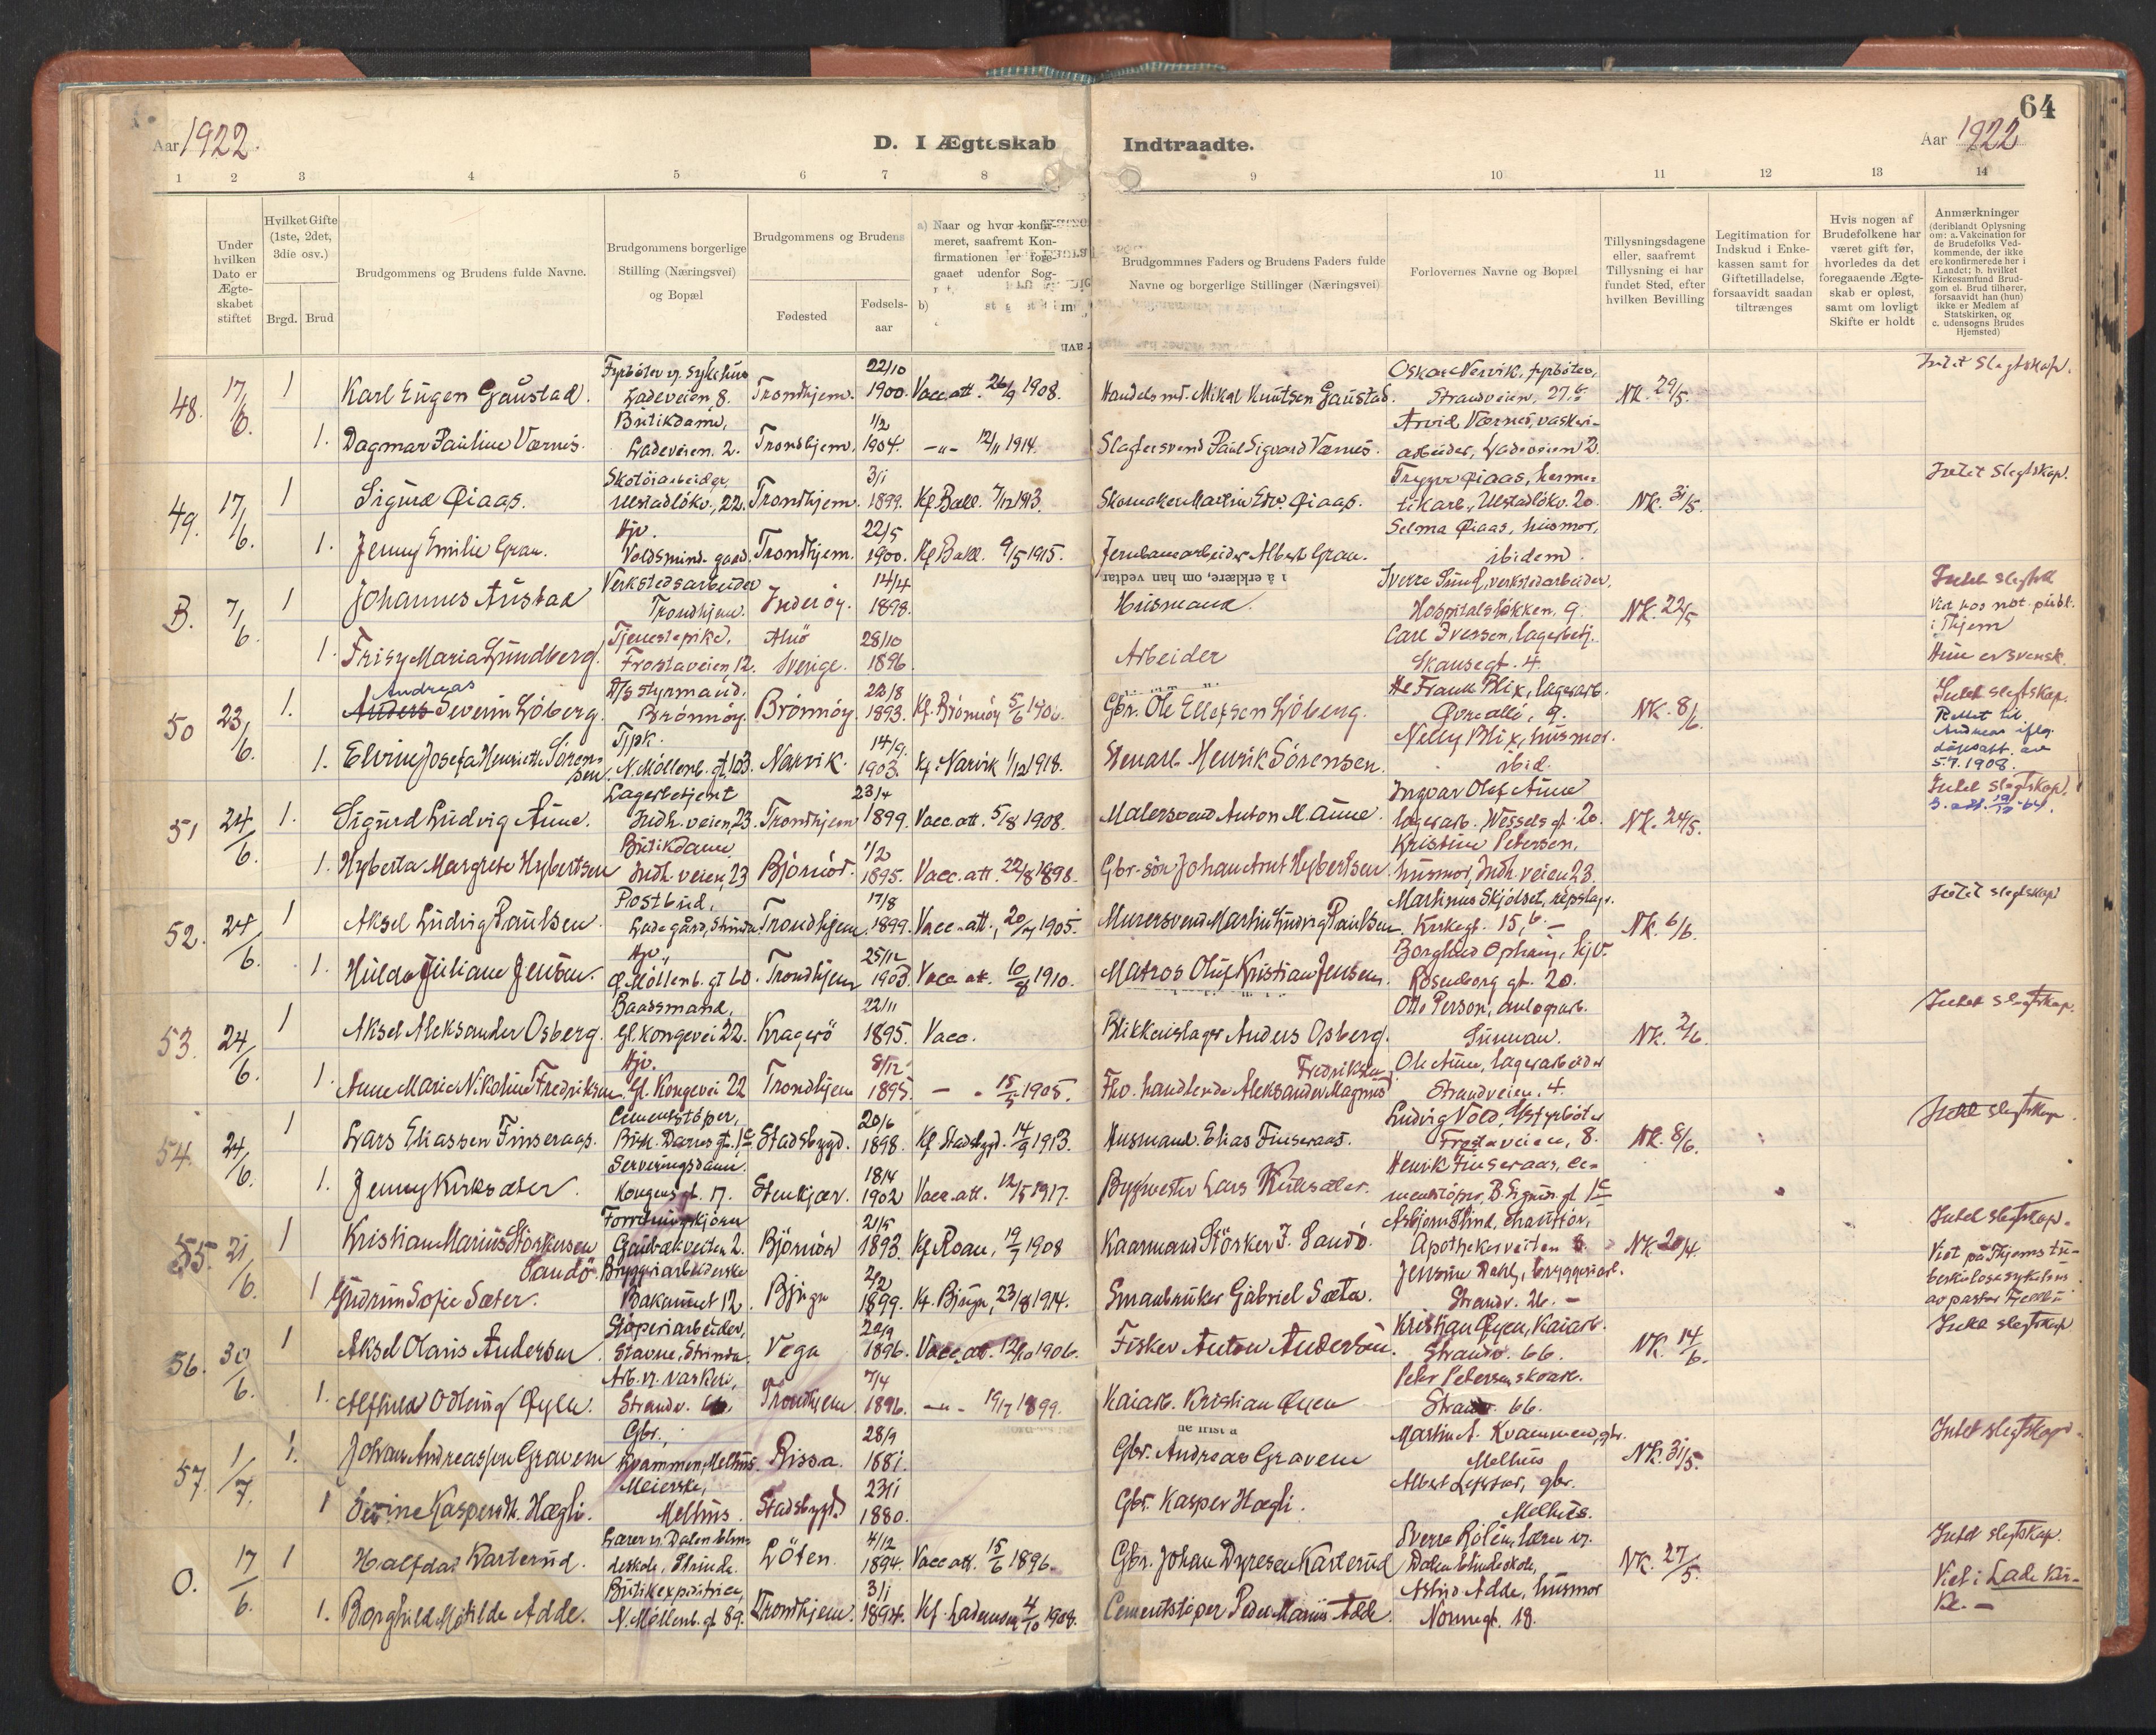 64
Aar 1922.
D. I Ægteskab Indtraadte.
Aar 1922
1 2 3 4 5 6 7 8 9 10 11 12 13 14
Under hvilken Dato er Ægteskabet stiftet
Hvilket Gifte (1ste, 2det, 3die osv.)
Brgd. Brud
Brudgommens og Brudens fulde Navne.
Brudgommens borgerlige Stilling (Næringsvei) og Bopæl
Brudgommens og Brudens
Fødested
Fødselsaar
a) Naar og hvor konfirmeret, saafremt Konfirmationen er foregaaet udenfor Sog-
b)
Brudgommnes Faders og Brudens Faders fulde Navne og borgerlige Stillinger (Næringsvei)
Forlovernes Navne og Bopæl
Tillysningsdagene eller, saafremt Tillysning ei har fundet Sted, efter hvilken Bevilling
Legitimation for Indskud i Enkekassen samt for Giftetilladelse, forsaavidt saadan tiltrænges
Hvis nogen af Brudefolkene har været gift før, hvorledes da det foregaaende Ægteskab er opløst, samt om lovligt Skifte er holdt
Anmærkninger (deriblandt Oplysning om: a. Vakcination for de Brudefolks Vedkommende, der ikke ere konfirmerede her i Landet; b. hvilket Kirkesamfund Brudgom el. Brud tilhører, forsaavidt han (hun) ikke er Medlem af Statskirken, og c. udensogns Brudes Hjemsted)
48. 17/6. 1 Karl Eugen Gaustad. Fyrbøter v. Sykehus Ladeveien, 8. Trondhjem. 22/10 1900. Vacc. att. 26/9 1908. Handelsmd. Mikal Knutsen Gaustad. Oskar Nervik, fyrbøter, Strandveien, 27. NK. 29/5. Intet Slegtskap.
1. Dagmar Pauline Værnes. Butikdame, Ladeveien. 2. Trondhjem. 1/2 1904. -"- 12/11 1914. Slagtersvend Paul Sigvard Værnes. Arvid Værnes, vaskeriarbeider, Ladeveien 2.
49. 17/6. 1 Sigurd Øiaas. Skotøiarbeider, Ulstadløkv., 22. Trondhjem. 3/1 1899. Kf. Bakl. 7/12 1913. Skomaker Martin Edv. Øiaas. Trygve Øiaas, hermetikarb., Ulstadløkv. 20. NK. 31/5. Intet Slegtskap.
1. Jenny Emilie Gran. Hjv. Voldsmind. gaard. Trondhjem. 22/5 1900. Kf. Bakl. 9/5 1915. Jernbanearbeider Albert Gran. Selma Øiaas, husmor, ibidem.
å erklære, om han vedtar
B. 7/6. 1 Johannes Austad Verkstedsarbeider Trondhjem. Inderøy. 14/4 1898. Husmann. Sverre Sund, verkstedarbeider, Hospitalsløkken, 9. NK. 22/5 Intet slegtsk Viet hos not. publ. i Thjem
1. Frisy Maria Lundberg. Tjenestepike, Frostaveien, 12. Sverige. 28/10 1896. Arbeider Carl Iversen, lagerbetj. Skansegt. 4. Hun er svensk.
50 23/6. 1. Andreas Anders Severin Løberg. D/s styrmand. Brønnøy. Brønnøy. 22/8 1893. Kf. Brønnøy 5/6 Gbr. Ole Ellefsen Løberg. Frank Blix, lagerarb. Øvre allé, 9. NK. 8/6. Intet slegtskap. Rettet til Andreas iflg. dåpsatt. av 5.7.1908.
1. Elvine Josefa Henriette Sørensen. Tjpk. N. Møllenb. gt. 103. Narvik. 14/9 1903. Kf. Narvik 1/12 1918. Stenarb. Henrik Sørensen. Nelly Blix, husmor. ibid.
51 24/6. 1. Sigurd Ludvig Aune. Lagerbetjent Indh. veien, 23. Trondhjem 23/4 1899. Vacc. att. 5/8 1908. Malersvend Anton M. Aune. Ingvar Olaf Aune lagerarb. Wessels gt. 20. NK. 24/5. Intet Slegtskap.
1. Hyberta Margrete Hybertsen Butikdame Indh. veien, 23 Bjørnør. 1/2 1895. Vacc. att. 22/8 1898. Gbr.-søn Johan Arnt Hybertsen Kristine Petersen, husmor, Indh. veien 23.
52. 24/6. 1 Aksel Ludvig Paulsen. Postbud, Lade gård, Strinda. Trondhjem. 17/8 1899. Vacc. att., 20/7 1905. Murersvend Martin Ludvig Paulsen. Martinus Skjølset, repslag. Kirkegt. 15, b. NK. 6/6. Intet slegtskap
1. Hulda Juliane Jensen. Hjv., Ø. Møllenb. gt. 60. Trondhjem 25/12 1903. Vacc. att. 10/8 1910. Matros Oluf Kristian Jensen. Borghild Ophaug, hjv. Rosenborg gt. 20.
53. 24/6. 1 Aksel Aleksander Osberg. Baadsmand, Gl. kongevei 22. Kragerö 22/11 1895. Vacc. Blikkenslager Anders Osberg. Otto Person, autogarb. NK. 2/6. Intet slegtskap.
1. Anne Marie Nikoline Fredriksen. Hjv. Gl. Kongevei 22 Trondhjem 8/12 1895. - " 15/5 1905. Fho. handlende Aleksander Magnus Fredriksen. Ole Aune, lagerarbeider Strandveien. 4.
54. 24/6. 1 Lars Eliassen Finseraas. Cementstøper, Bisk. Dares gt. 1c Stadsbygd. 20/6 1898. Kf. Stadsbygd. 14/9 1913. Husmand. Elias Finseraas. Ludvig Vold, fyrbøter Frostaveien, 8. NK. 8/6. Intet slegtskap.
1. Jenny Kirksæter. Serveringsdame. Kongens gt. 17. Stenkjær. 18/4 1902 Vacc. att. 12/5 1917. Bygmester Lars Kirksæter. Henrik Finseraas, cementstøper, B. Sigurds gt. 1c
55. 21/6. 1 Kristian Marius Störkersen Sandö Forretningskjører Gaubækveiten 2. Björnör 21/5 1893. Kf. Roan, 19/7 1908 Kaarmand Störker J. Sandö. Asbjørn Strind, chauffør, Apothekerveiten NK. 20/4. Intet slegtskap. Viet på Thjems tuberkulosesykehus av pastor
1 Gudrun Sofie Sæter. Bryggeriarbeiderske Bakaunet 12. Bjugn 2/2 1899. Kf. Bjugn, 23/8 1914. Smaabruker Gabriel Sæter. Jensine Dahl, bryggeriarb. Strandv. 26.
56. 30/6. 1 Aksel Olaus Andersen Støperiarbeider, Stavne, Strinda. Vega 20/9 1896. Vacc. att. 12/10 1906. Fisker Anton Andersen. Kristian Øyen, kaiarb. Strandv. 66. NK. 14/6. Intet slegtskap
1. Alfhild Oding Øyen. Arb. v. vaskeri, Strandv. 66. Trondhjem 7/4 1896. -"- 19/7 1899. Kaiarb. Kristian Øyen Peter Petersen, skoarb. Strandv. 66.
57. 1/7. 1. Johan Andreassen Gravem Gbr., Kvammen, Melhus. Rissa. 28/9 1881. Gbr. Andreas Gravem Martin A. Kvammen, gbr. Melhus NK. 31/5. Intet slegtskap.
1 Serine Kaspersdt. Hægli. Meierske, Melhus. Stadsbygd. 23/1 1880. Gbr. Kasper Hægli. gbr. Melhus.
O. 17/6. 1 Halfdan Karterud. Lærer v. Dalen blindeskole, Strinda. Löten. 4/12 1894. Vacc. att. 15/6 1896. Gbr. Johan Dyresen Karterud Sverre Rolén, lærer v. Dalen blindeskole, NK. 27/5. Intet slegtskap. Viet i Lade kirke.
1. Borghild Matilde Adde. Butikexpeditrice, N. Møllenb. gt. 89. Trondhjem. 3/1 1894. Kf. Lademoen 4/10 1908. Cementstøper Peder Marius Adde. Astrid Adde, husmor Nonnegt. 18.